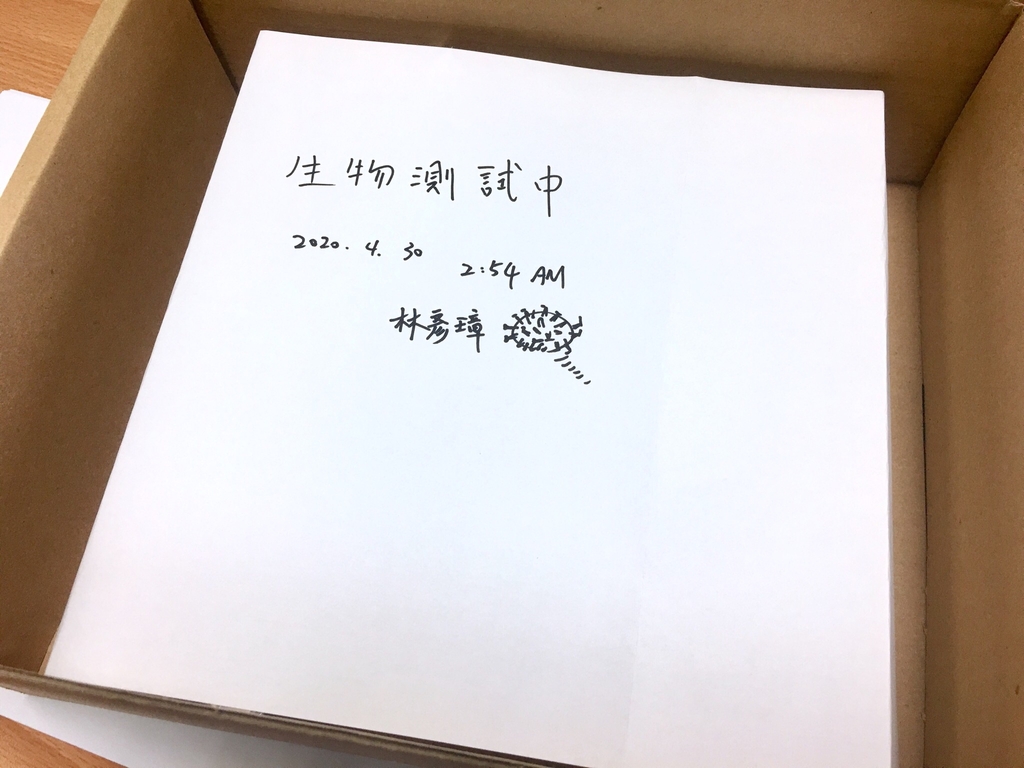 生物測試中
2020. 4. 30
2:54 AM
林彥璋